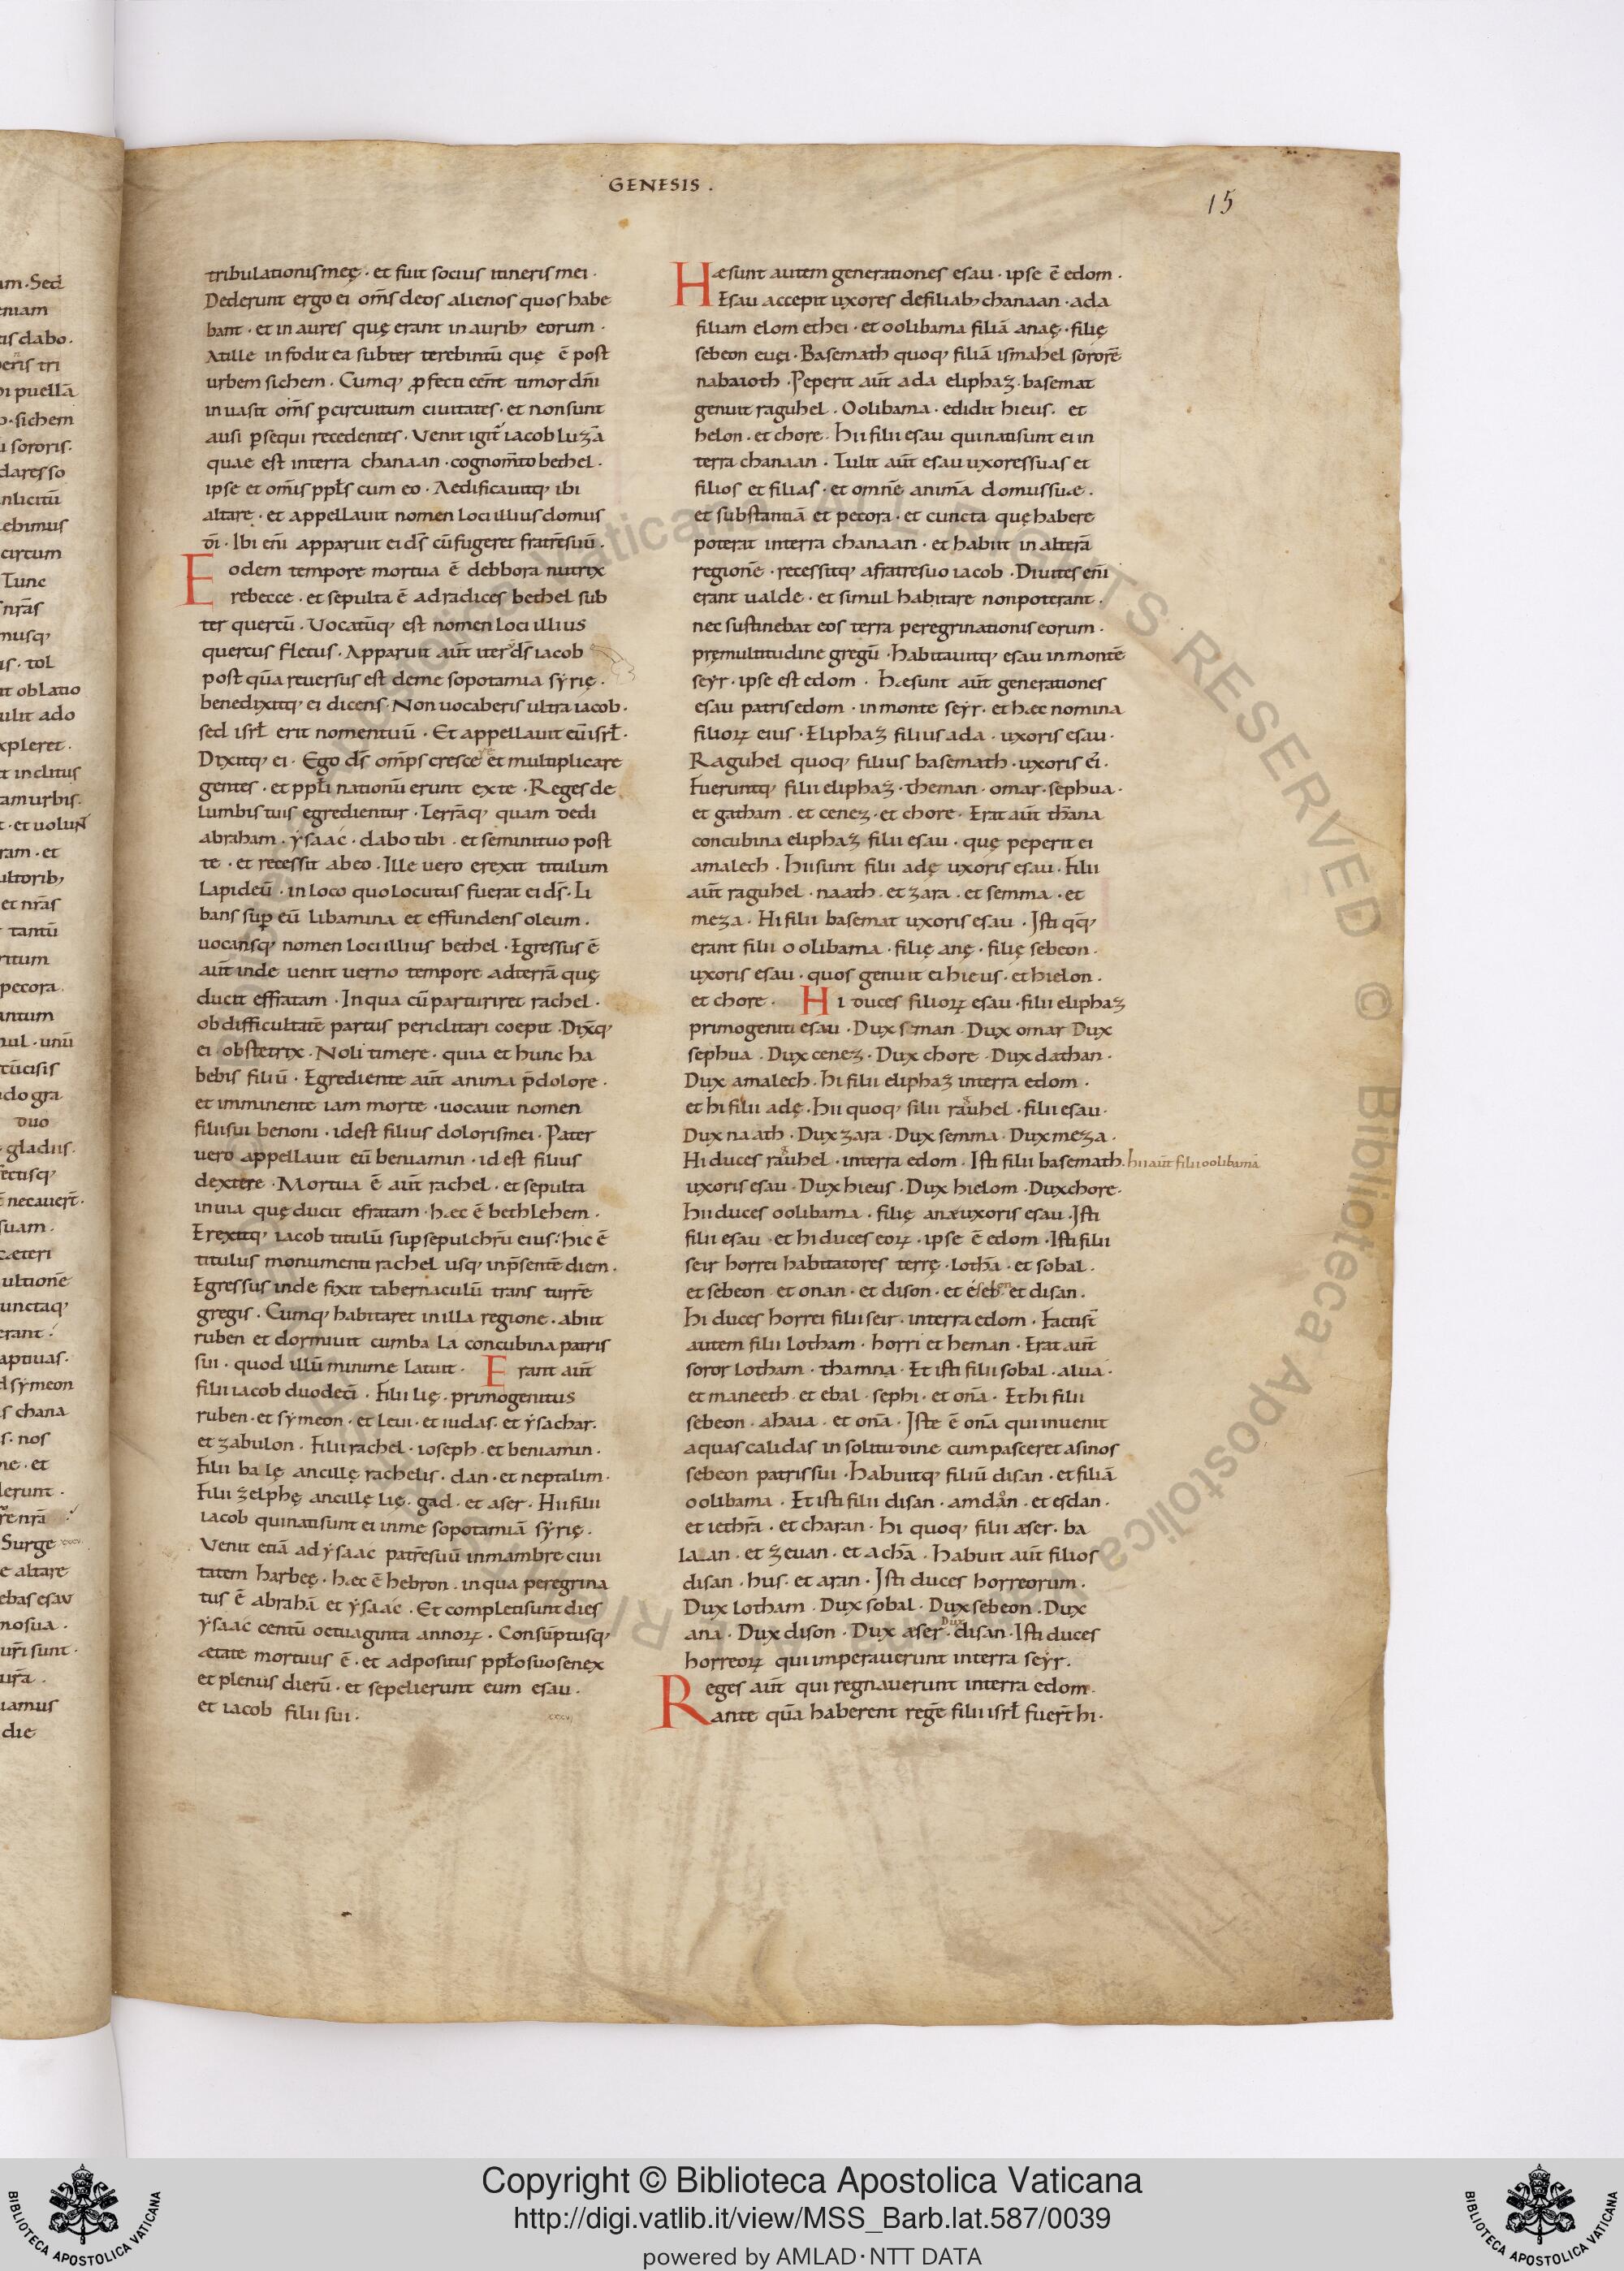 GENESIS .
15
tribulationis meę · et fuit socius itineris mei ·
Dederunt ergo ei om̅s deos alienos quos habe
bant · et in aures quę erant in aurib; eorum ·
At ille infodit ea subter terebintū quę ē post
urbem sichem · Cumq; ꝓfecti eēnt timor dn̄i
inuasit om̅s ꝑcircuitum ciuitates · et non sunt
ausi ꝑsequi recedentes · Venit igit̄ iacob luzā
quae est in terra chanaan · cognom̄to bethel ·
ipse et om̅is ppl̄s cum eo · Aedificauitq; ibi
altare · et appellauit nomen loci illius domus
dī · Ibi en̄i apparuit ei ds̄ cū fugeret fratrē suū ·
Eodem tempore mortua ē debbora nutrix
rebecce · et sepulta ē ad radices bethel sub
ter quercū · Vocatūq; est nomen loci illius
quercus fletus · Apparuit aūt iter ds̄ iacob
post qūa reuersus est de mesopotamia sẏrię ·
benedixitq; ei dicens · Non uocaberis ultra iacob ·
sed isrl̄ erit nomen tuū · Et appellauit eū isrl̄ ·
Dixitq; ei · Ego ds̄ om̅ps cresce et multiplicare
gentes · et ppl̄i nationū erunt ex te · Reges de
lumbis tuis egredientur · Terrāq; quam dedi
abraham · ẏsaac · dabo tibi · et semini tuo post
te · et recessit ab eo · Ille uero erexit titulum
lapideū · in loco quo locutus fuerat ei ds̄ · Li
bans suꝑ eū libamina et effundens oleum ·
uocansq; nomen loci illius bethel · Egressus ē
aūt inde uenit uerno tempore ad terrā quę
ducit effratam · In qua cū parturiret rachel ·
ob difficultatē partus periclitari coepit · Dix̄q;
ei obstetrix · Noli timere · quia et hunc ha
bebis filiū · Egrediente aūt anima p̄ dolore ·
et imminente iam morte · uocauit nomen
filii sui benoni · id est filius doloris mei · Pater
uero appellauit eū beniamin · id est filius
dextere · Mortua ē aūt rachel · et sepulta
in uia quę ducit efratam · hæc ē bethlehem ·
Erexitq; iacob titulū suꝑ sepulchrū eius · hic ē
titulus monumenti rachel usq; in p̄sentē diem ·
Egressus inde fixit tabernaculū trans turrē
gregis · Cumq; habitaret in illa regione · abiit
ruben et dormiuit cum bala concubina patris
sui · quod illū minime latuit · Erant aūt
filii iacob duodecī · Filii lię · primogenitus
ruben · et sẏmeon · et leui · et iudas · et ẏsachar ·
et zabulon · Filii rachel · ioseph · et beniamin ·
Filii balę ancillę rachelis · dan · et neptalim ·
Filii zelphę ancillę lię · gad · et aser · Hii filii
iacob qui nati sunt ei in mesopotamiā sẏrię ·
Venit etiā ad ẏsaac patrē suū in mambre ciui
tatem harbeę · hæc ē hebron · in qua peregrina
tus ē abrahā et ẏsaac · Et completi sunt dies
ẏsaac centū octuaginta annoꝝ · Consūptusq;
ætate mortuus ē · et adpositus ppl̄o suo senex
et plenus dierū · et sepelierunt eum esau ·
et iacob filii sui ·
xxxvj
Hæ sunt autem generationes esau · ipse ē edom ·
Esau accepit uxores de filiab; chanaan · ada
filiam elom ethei · et oolibama filiā anaę · filię
sebeon euęi · Basemath quoq; filiā ismahel sororē
nabaioth · Peperit aūt ada eliphaz · basemat
genuit raguhel · Oolibama · edidit hieus · et
helon · et chore · Hii filii esau qui nati sunt ei in
terra chanaan · Tulit aūt esau uxores suas et
filios et filias · et omnē animā domus suæ ·
et substantiā et pecora · et cuncta quę habere
poterat in terra chanaan · et habiit in alterā
regionē · recessitq; a fratre suo iacob · Diuites en̄i
erant ualde · et simul habitare non poterant ·
nec sustinebat eos terra peregrinationis eorum ·
pręmultitudine gregū · habitauitq; esau in montē
seẏr · ipse est edom · Hæ sunt aūt generationes
esau patris edom · in monte seẏr · et hæc nomina
filioꝝ eius · Eliphaz filius ada · uxoris esau ·
Raguhel quoq; filius basemath · uxoris ei ·
Fueruntq; filii eliphaz · theman · omar · sephua ·
et gatham · et cenez · et chore · Erat aūt thāna
concubina eliphaz filii esau · quę peperit ei
amalech · Hii sunt filii adę uxoris esau · Filii
aūt raguhel · naath · et zara · et semma · et
meza · Hi filii basemat uxoris esau · Isti qq̄;
erant filii oolibama · filię anę · filię sebeon ·
uxoris esau · quos genuit ei hieus · et hielon ·
et chore · Hi duces filioꝝ esau · filii eliphaz
primogeniti esau · Dux seman · Dux omar Dux
sephua · Dux cenez · Dux chore · Dux dathan ·
Dux amalech · Hi filii eliphaz in terra edom ·
et hi filii adę · Hii quoq; filii rauhel · filii esau ·
Dux naath · Dux zara · Dux semma · Dux meza ·
Hi duces rauhel · in terra edom · Isti filii basemath · hii aūt filii oolibamā
uxoris esau · Dux hieus · Dux hielom · Dux chore ·
Hii duces oolibama · filię anæ uxoris esau · Isti
filii esau · et hi duces eoꝝ · ipse ē edom · Isti filii
seir horrei habitatores terrę · lothā · et sobal ·
et sebeon · et onan · et dison · et eseb · et disan ·
Hi duces horrei filii seir · in terra edom · Facti st̄
autem filii lotham · horri et heman · Erat aūt
soror lotham · thamna · Et isti filii sobal · alua ·
et maneeth · et ebal · sephi · et onā · Et hi filii
sebeon · ahaia · et onā · Iste ē onā qui inuenit
aquas calidas in solitudine cum pasceret asinos
sebeon patris sui · Habuitq; filiū disan · et filiā
oolibama · Et isti filii disan · amdan · et esdan ·
et iethrā · et charan · Hi quoq; filii æser · ba
laan · et zeuan · et achā · Habuit aūt filios
disan · hus · et aran · Isti duces horreorum ·
Dux lotham · Dux sobal · Dux sebeon · Dux
ana · Dux dison · Dux æser · Dux disan · Isti duces
horreoꝝ qui imperauerunt in terra seẏr ·
Reges aūt qui regnauerunt in terra edom ·
ante qūa haberent regē filii isrl̄ fuert̄ hi ·
Copyright © Biblioteca Apostolica Vaticana
http://digi.vatlib.it/view/MSS_Barb.lat.587/0039
powered by AMLAD·NTT DATA
BIBLIOTECA APOSTOLICA VATICANA
BIBLIOTECA APOSTOLICA VATICANA